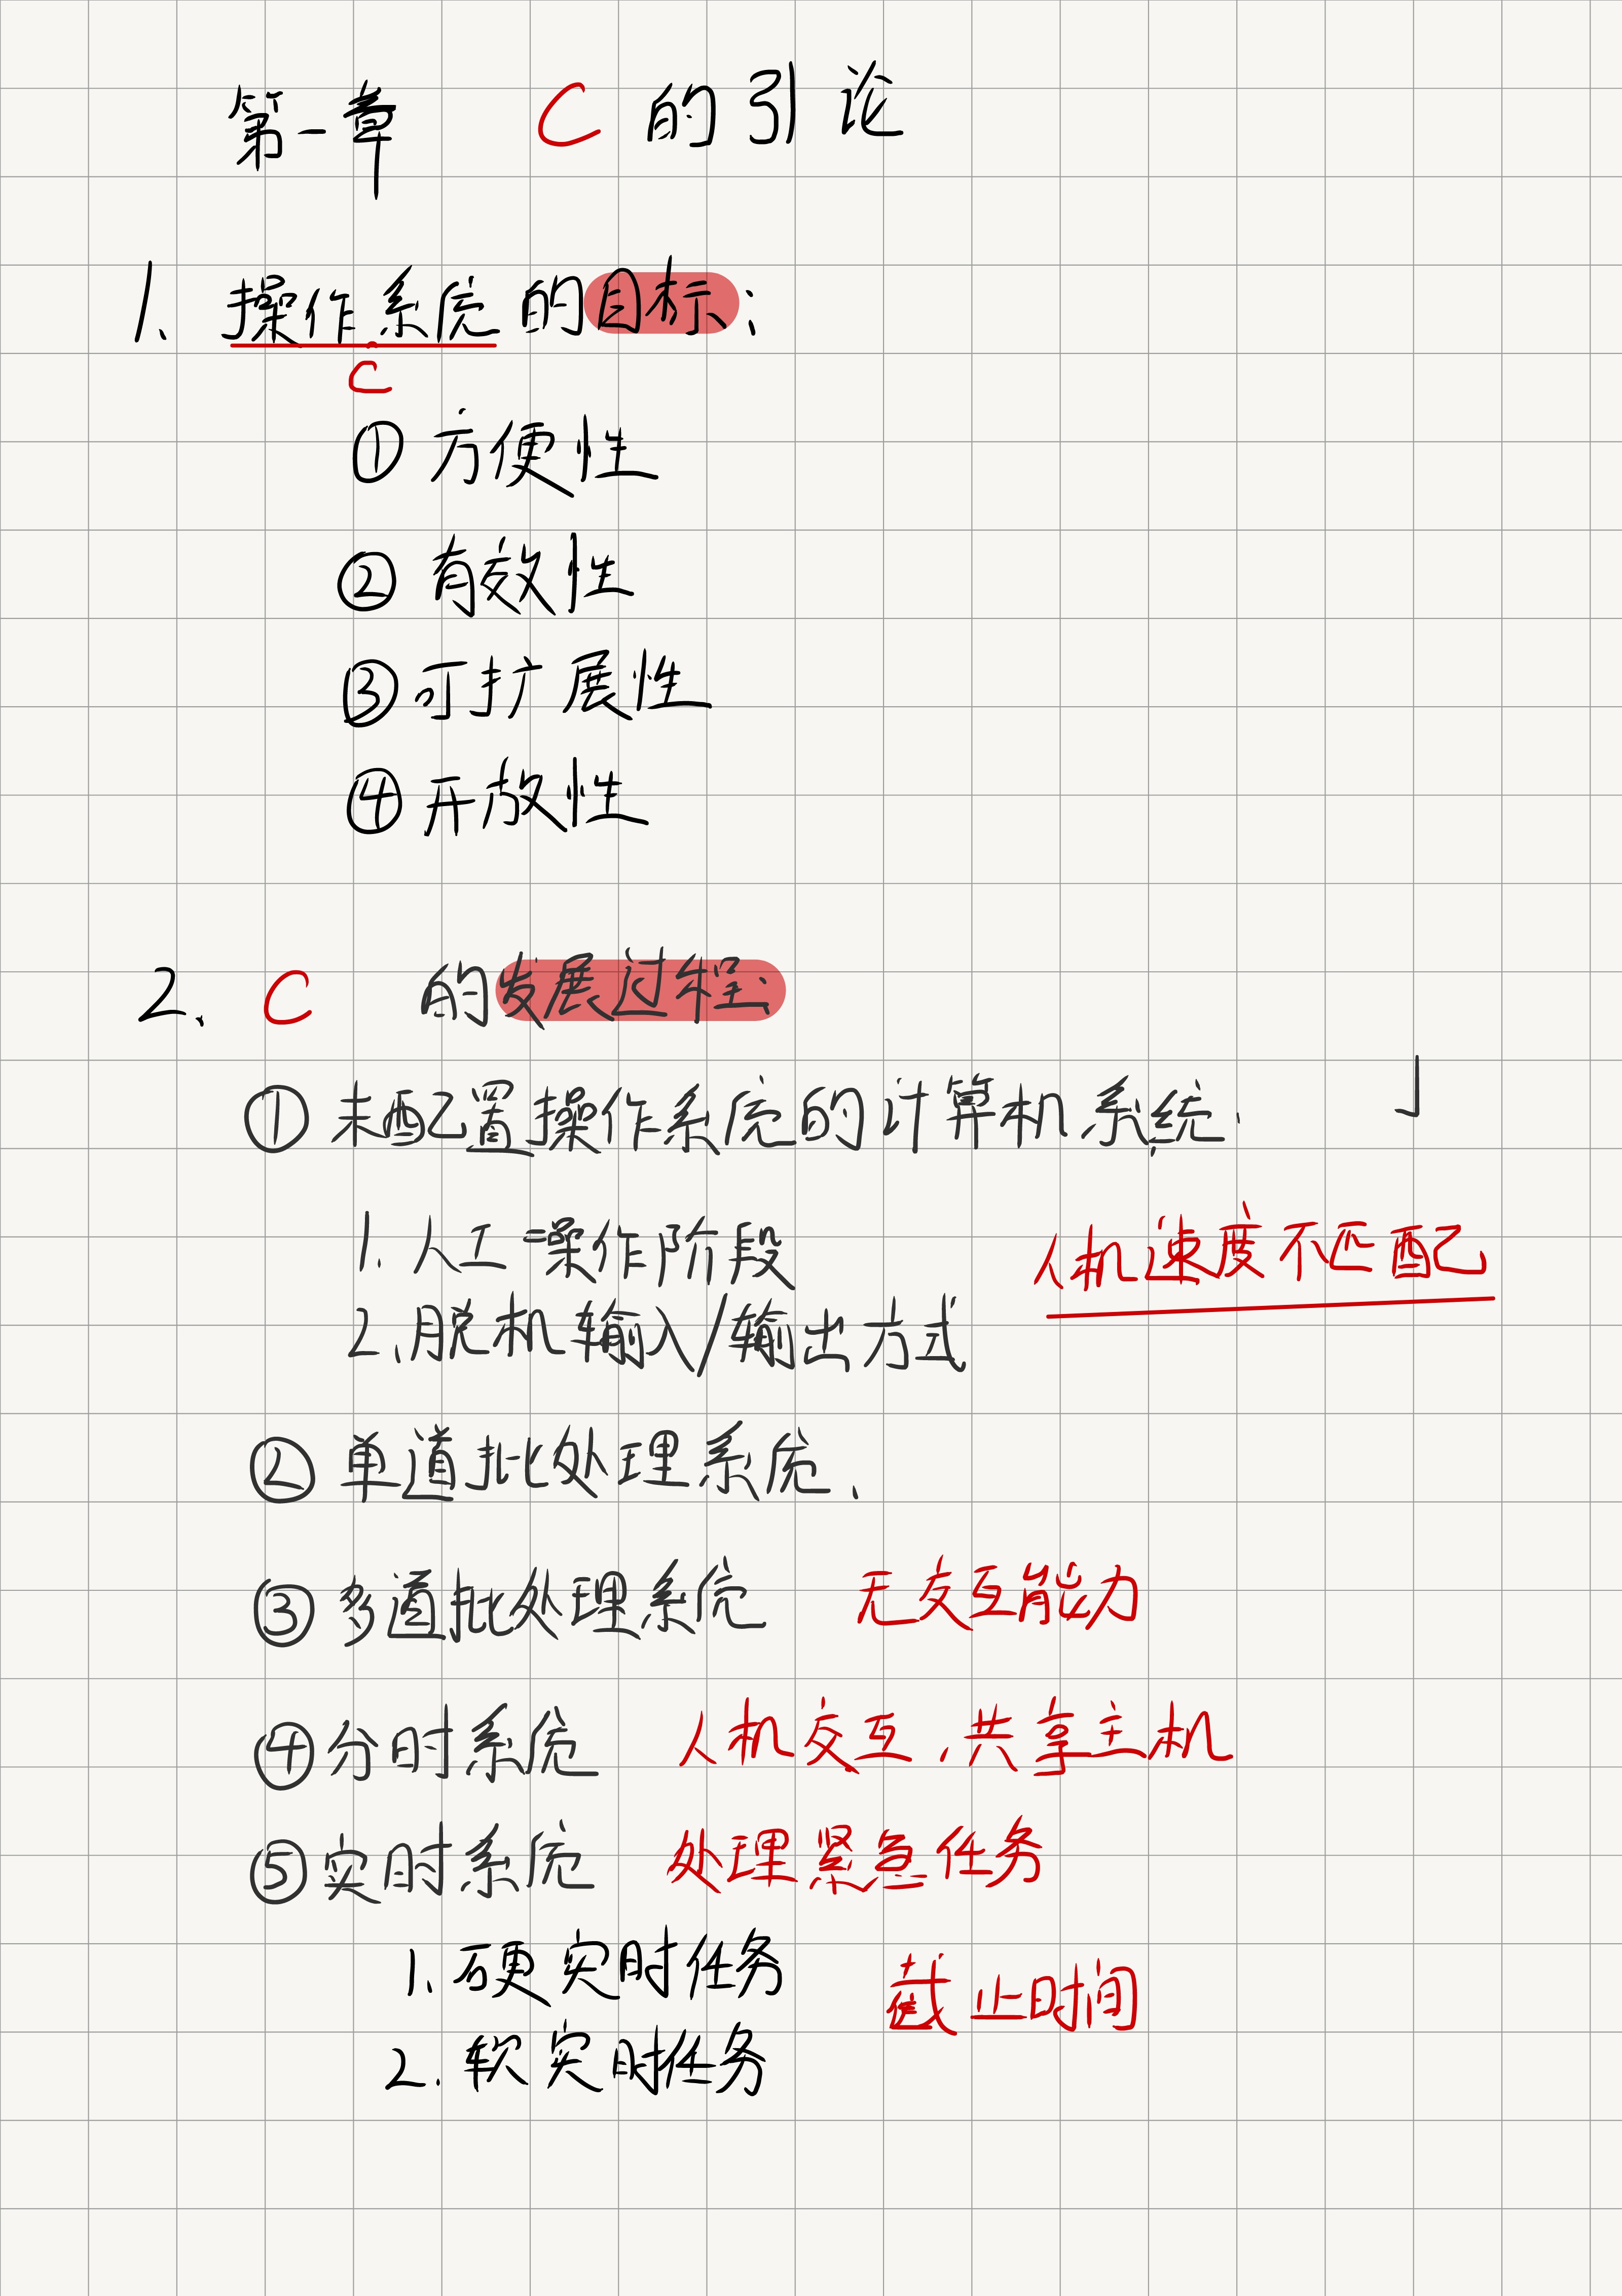 第一章 C 的引论
1. 操作系统的目标:
C
① 方便性
② 有效性
③ 可扩展性
④ 开放性
2. C 的发展过程:
① 未配置操作系统的计算机系统.
1. 人工操作阶段 人机速度不匹配
2. 脱机输入/输出方式
② 单道批处理系统.
③ 多道批处理系统 无交互能力
④ 分时系统 人机交互,共享主机
⑤ 实时系统 处理紧急任务
1. 硬实时任务 截止时间
2. 软实时任务